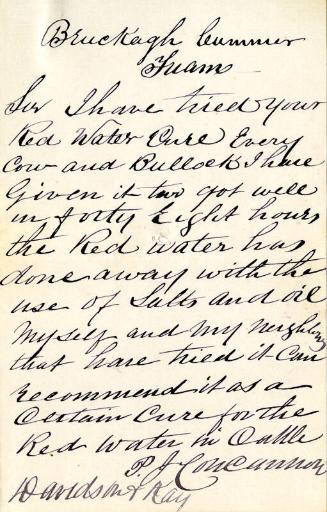 Bruckagh Cummer
Tuam
Sir I have tried your
Red Water Cure Every
Cow and Bullock I have
Given it two got well
in forty Eight hours
the Red water has
done away with the
use of Salts and oil
Myself and My Neighbours
that have tried it Can
recommend it as a
Certain Cure for the
Red Water in Cattle
P. J. Concannon
Davidson & Kay